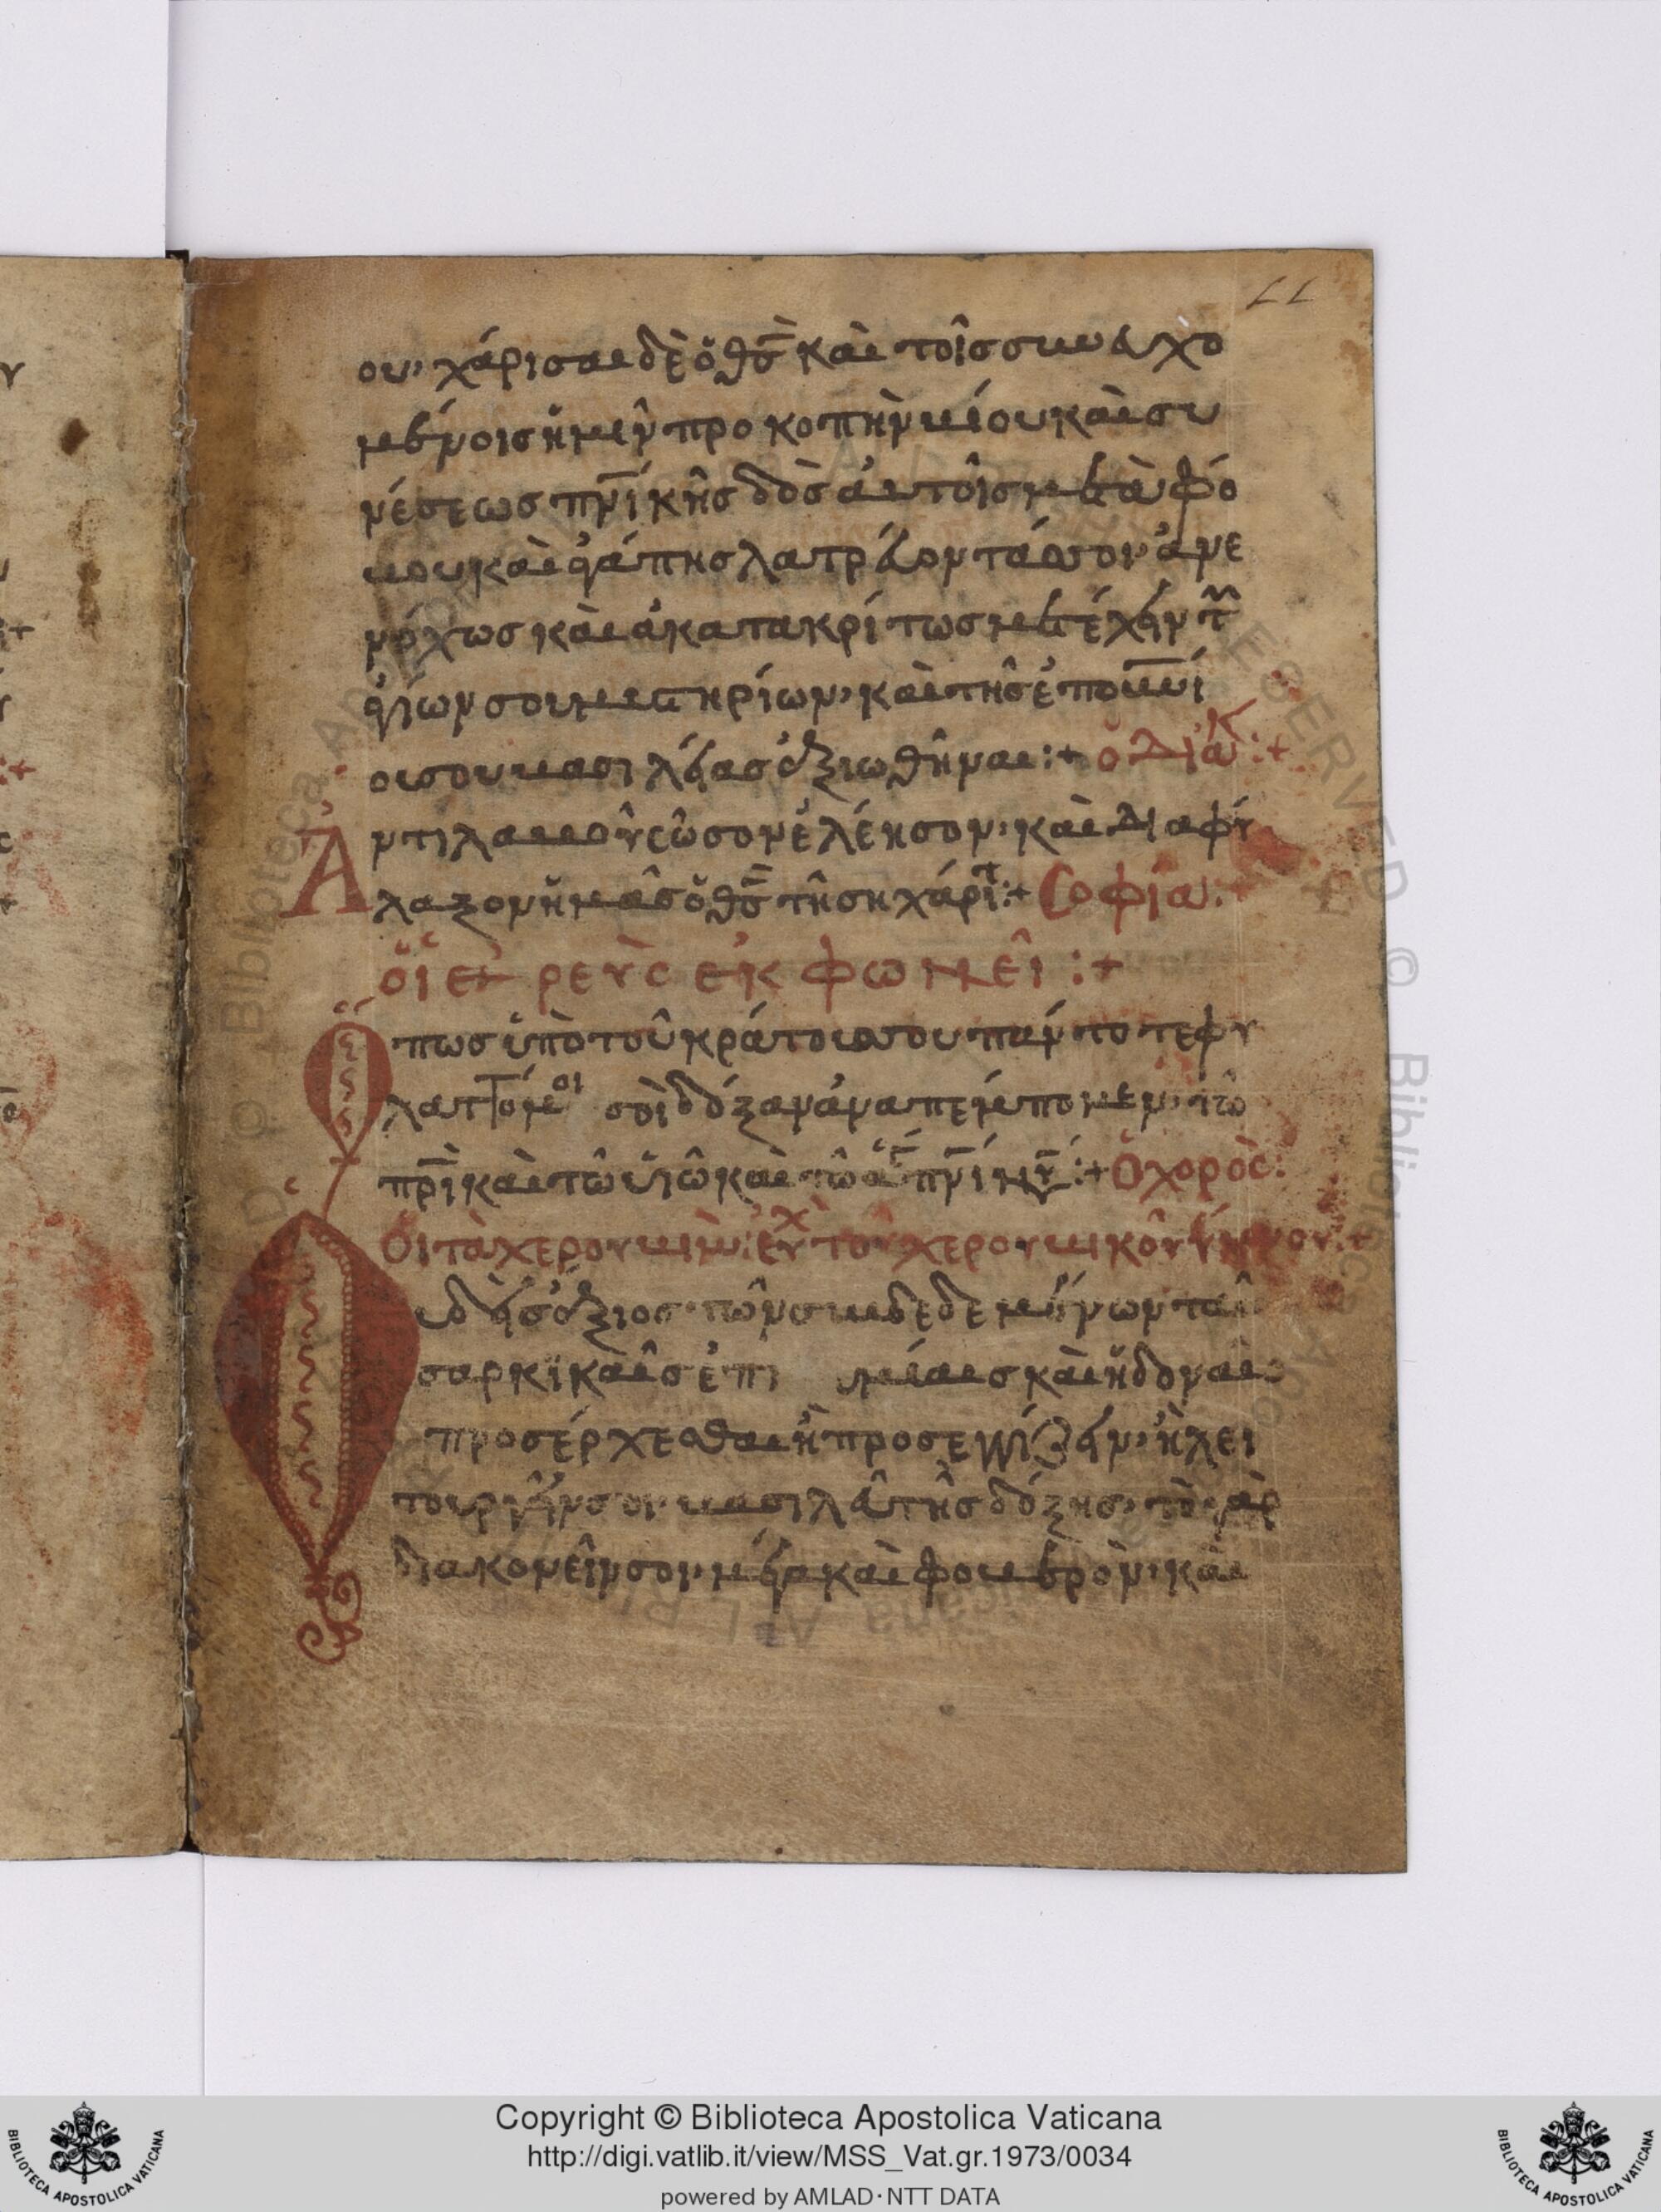 11
ου· χάρισαι δὲ ὁ θς̅ καὶ τοῖς συνευχο
μένοις ἡμῖν προκοπὴν βίου καὶ συ
νέσεως πνι̅κῆς δὸς αὐτοῖς μετὰ φό
βου καὶ ἀγάπης λατρεύοντάς σοι ἀνε
νόχως καὶ ἀκατακρίτως μετέχειν τῶν
ἁγίων σου μυστηρίων· καὶ τῆς ἐπουνί
ου σου βασιλείας ἀξιωθῆναι :+ ὁ διακ :+
Ἀντιλαβοῦ σῶσον ἐλέησον· καὶ διαφύ
λαξον ἡμᾶς ὁ θς̅ τῆ ση χάριτ :+ Σοφία :+
ὁ ἱερεὺς ἐκφωνεῖ :+
Ὅπως ὑπὸ τοῦ κράτους σου πάντοτε φυ
λαττόμενοι σοὶ δόξαν ἀναπέμπομεν· τῶ
πρι̅ καὶ τῶ υἱῶ καὶ τῶ ἁγ πνι̅ νυ̅ :+ Ὁ χορὸς :
Οἱ τὰ χερουβὶμ : εὐχ τοῦ χερουβικοῦ ὕμνου :+
Οὐδεὶς ἄξιος· τῶν συνδεδεμένων ταῖ
σαρκικαῖς ἐπι μίαις καὶ ἡδοναῖς
προσέρχεσθαι ἢ προσεγγίζειν· ἢ λει
τουργεῖν σοι βασιλεῦ τῆς δόξης· τὸ γὰρ
διακονεῖν σοι μέγα καὶ φοβερὸν· καὶ
Copyright © Biblioteca Apostolica Vaticana
http://digi.vatlib.it/view/MSS_Vat.gr.1973/0034
powered by AMLAD·NTT DATA
BIBLIOTECA APOSTOLICA VATICANA
BIBLIOTECA APOSTOLICA VATICANA